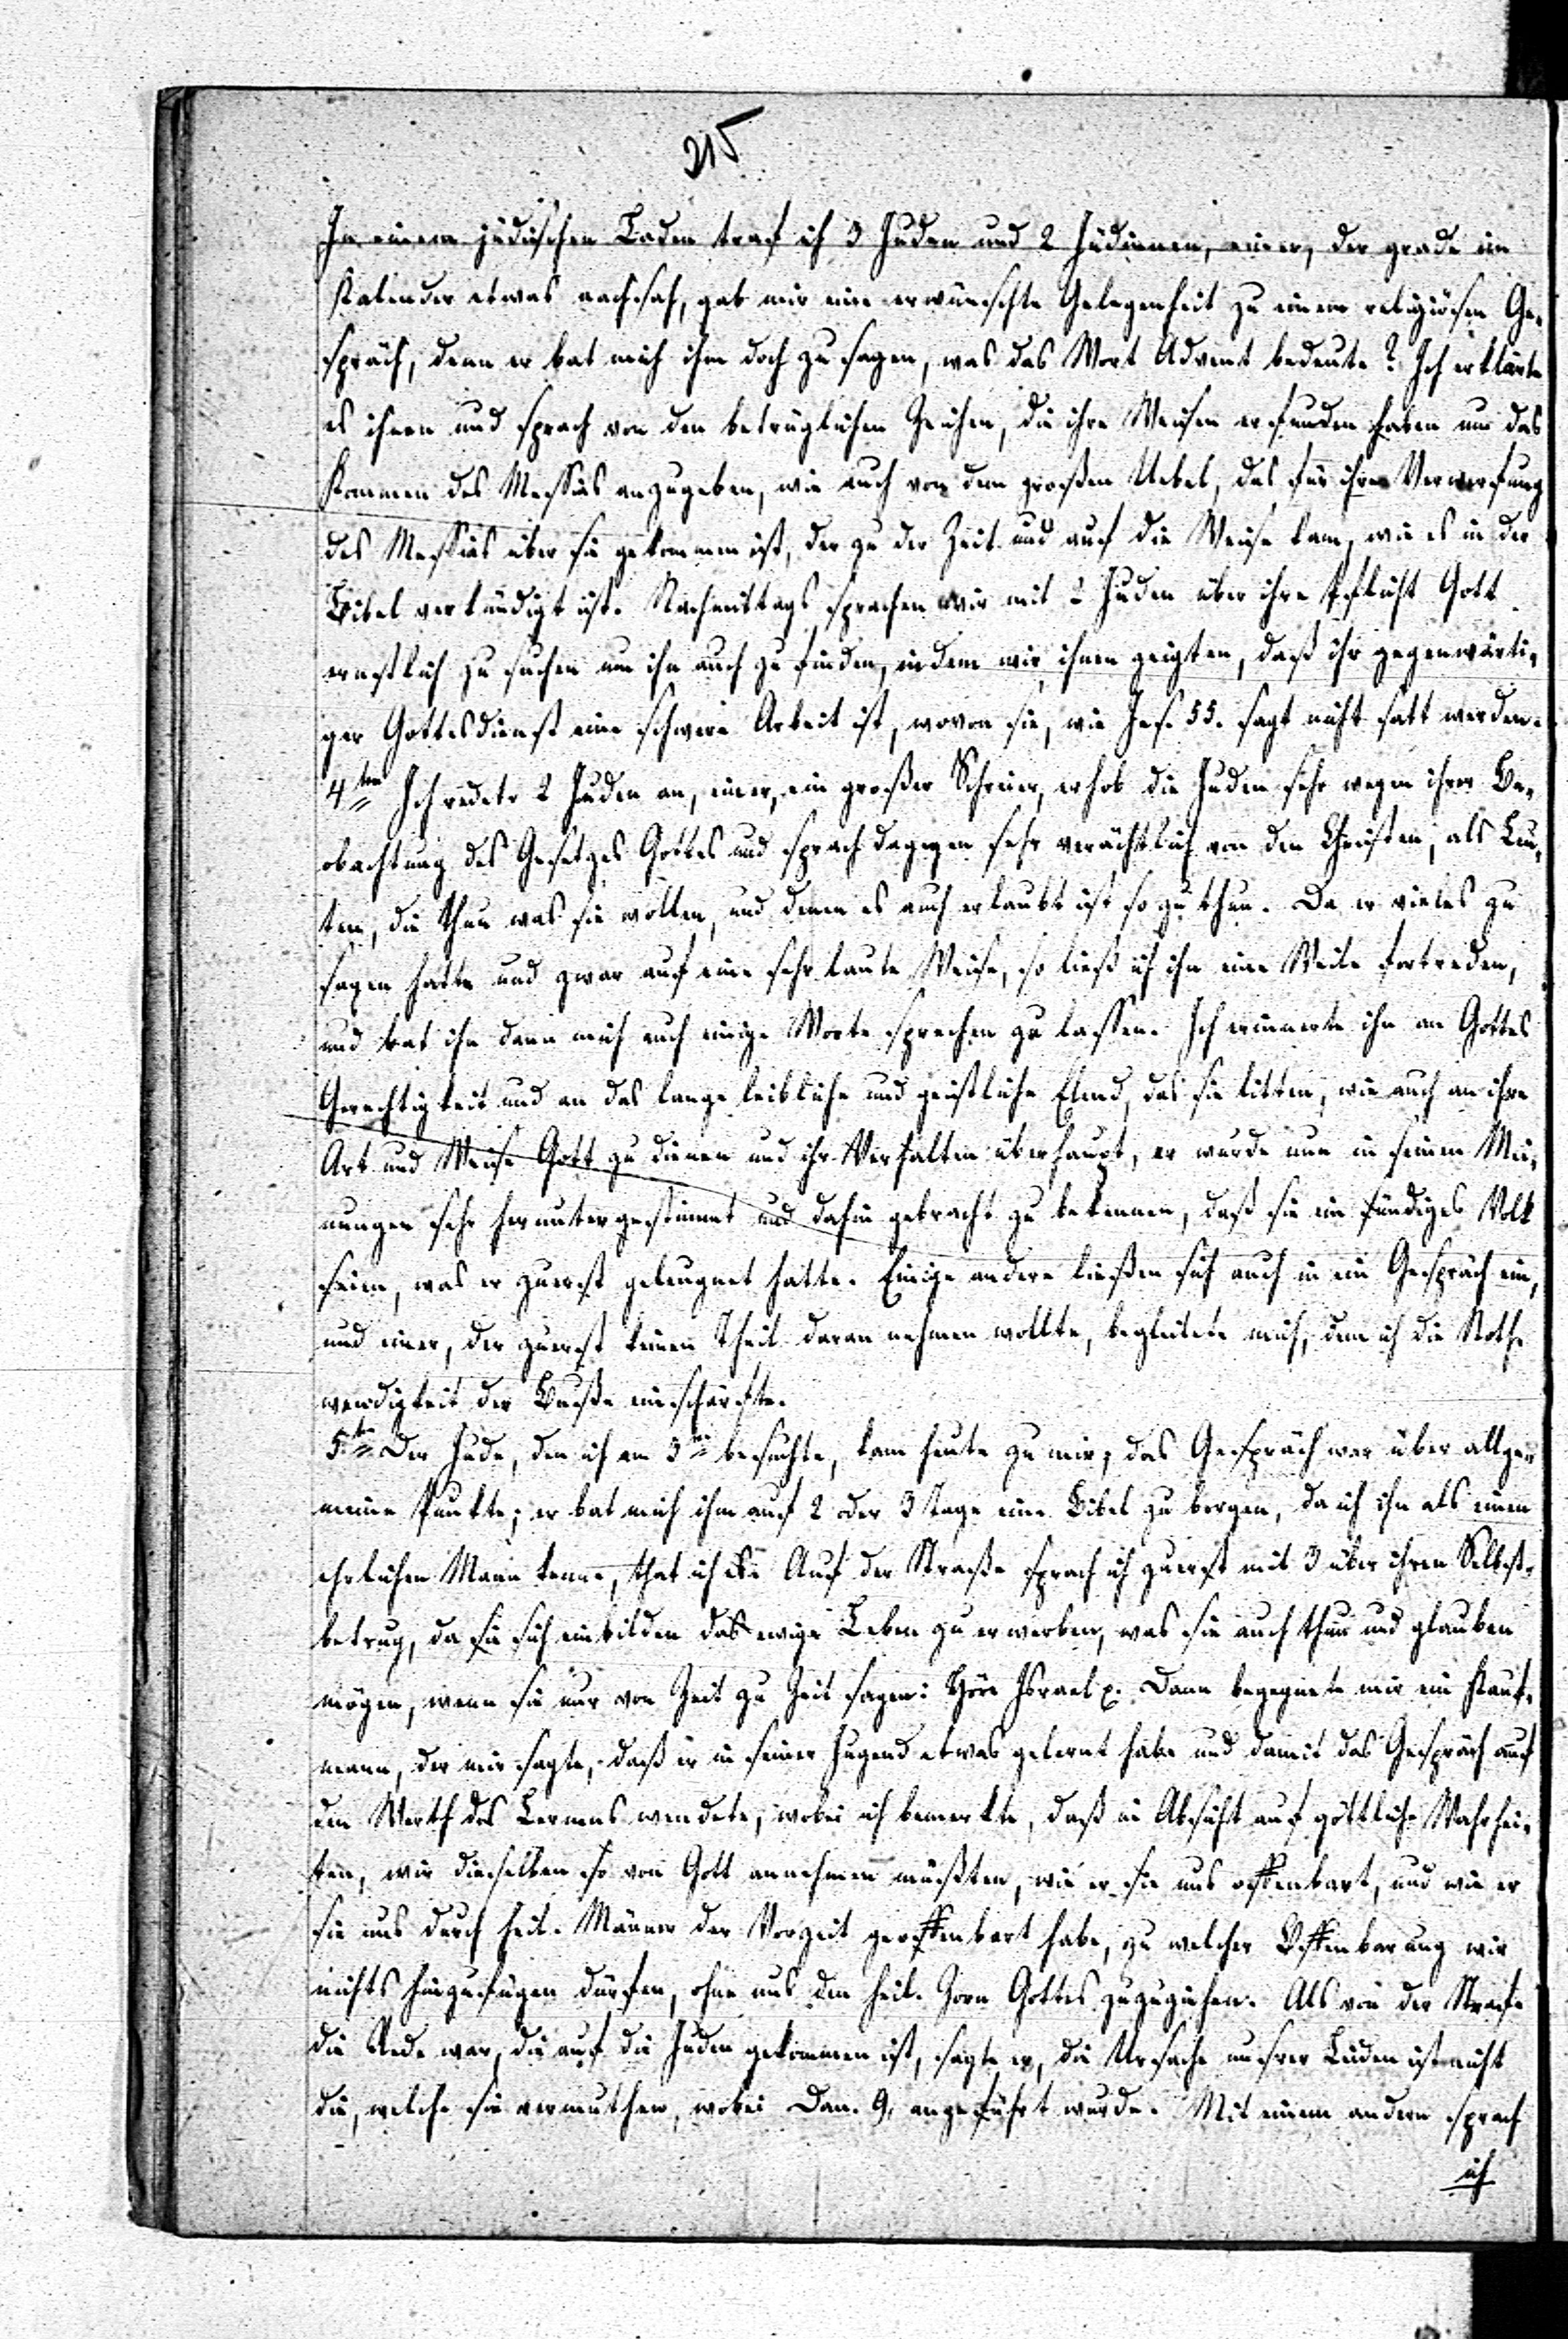 315
In einem jüdischen Laden traf ich 3 Juden und 2 Jüdinnen, einer, der grade im
Kalender etwas nachsah, gab mir eine erwünschte Gelegenheit zu einem religiösen Ge-
spräch, denn er bat mich ihm doch zu sagen, was das Wort Advent bedeute? Ich erklärte
es ihnen und sprach von den betrüglichen Zeichen, die ihre Weisen erfunden haben um das
Kommen des Messias anzugeben, wie auch von dem großen Uebel, das für ihre Verwerfung
des Messias über sie gekommen ist, der zu der Zeit und auf die Weise kam, wie es in der
Bibel verkündigt ist. Nachmittags sprachen wir mit 2 Juden über ihre Pflicht Gott
ernstlich zu suchen um ihn auch zu finden, indem wir ihnen zeigten, daß ihr gegenwärti-
ger Gottesdienst eine schwere Arbeit ist, wovon sie, wie Jes. 55. sagt nicht satt werden.
4ten Ich redete 2 Juden an, einer, ein großer Schreier, erhob die Juden sehr wegen ihrer Be-
obachtung des Gesetzes Gottes und sprach dagegen sehr verächtlich von den Christen, als Leu-
ten, die thun was sie wollen, und denen es auch erlaubt ist so zu thun. Da er vieles zu
sagen hatte und zwar auf eine sehr laute Weise, so ließ ich ihn eine Weile fortreden,
und bat ihn dann mich auch einige Worte sprechen zu lassen. Ich erinnerte ihn an Gottes
Gerechtigkeit und an das lange leibliche und geistliche Elend, das sie litten, wie auch an ihre
Art und Weise Gott zu dienen und ihr Verhalten überhaupt, er wurde nun in seinen Mei-
nungen sehr heruntergestimmt und dahin gebracht zu bekennen, daß sie ein sündiges Volk
seien, was er zuerst geleugnet hatte. Einige andere ließen sich auch in ein Gespräch ein,
und einer, der zuerst keinen Theil daran nehmen wollte, begleitete mich, dem ich die Noth-
wendigkeit der Buße einschärfte.
5ten Der Jude, den ich am 3ten besuchte, kam heute zu mir, das Gespräch war über allge-
meine Punkte; er bat mich ihm auf 2 oder 3 Tage eine Bibel zu borgen, da ich ihn als einen
ehrlichen Mann kenne, that ich es. Auf der Straße sprach ich zuerst mit 3 über ihren Selbst-
betrug, da sie sich einbilden das ewige Leben zu erwerben, was sie auch thun und glauben
mögen, wenn sie nur von Zeit zu Zeit sagen: Höre Israel p. Dann begegnete mir ein Kauf-
mann, der mir sagte, daß er in seiner Jugend etwas gelernt habe und damit das Gespräch auf
den Werth des Lernens wendete, wobei ich bemerkte, daß in Absicht auf göttliche Wahrhei-
ten, wir dieselben so von Gott annehmen müßten, wie er sie uns offenbart, und wie er
sie uns durch heil. Männer der Vorzeit geoffenbart habe, zu welcher Offenbarung wir
nichts hinzufügen dürfen, ohne uns den heil. Zorn Gottes zuzuziehen. Als von der Strafe
die Rede war, die auf die Juden gekommen ist, sagte er, die Ursache unsrer Leiden ist nicht
die, welche sie vermuthen, wobei Dan. 9, angeführt wurde. Mit einem andern sprach
ich